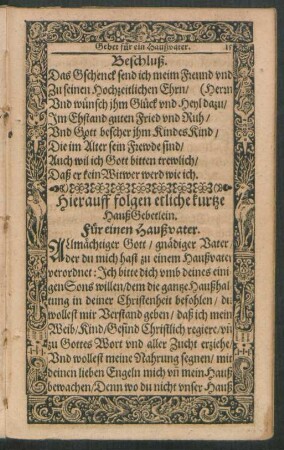 Gebet für ein Haußvater.
Beschluß.
Das Gschenck send ich meim Freund vnd
Zu seinen Hochzeitlichen Ehrn/ (Herrn
Vnd wünsch jhm Glück vnd Heyl dazu/
Im Ehstand guten Fried vnd Ruh/
Vnd Gott bescher jhm Kindes Kind/
Die im Alter sein Frewde sind/
Auch wil ich Gott bitten trewlich/
Daß er kein Witwer werd wie ich.
Hierauff folgen etliche kurtze
Hauß Gebetlein.
Für einen Haußvater.
Allmächtiger Gott/ gnädiger Vater
der du mich hast zu einem Haußvater
verordnet: Ich bitte dich vmb deines eini
gen Sons willen/ dem die gantze Haußhal
tung in deiner Christenheit befohlen/ du
wollest mir Verstand geben/ daß ich mein
Weib/ Kind/ Gesind Christlich regiere/ vñ
zu Gottes Wort vnd aller Zucht erziehe/
Vnd wollest meine Nahrung segnen/ mit
deinen lieben Engeln mich vñ mein Hauß
bewachen/ Denn wo du nicht vnser Hauß